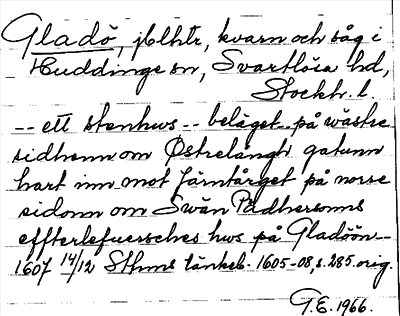 Gladö, jblhtr, kvarn och såg i
Huddinge sn, Svartlösa hd,
Stockh. l.
-- ett stenhws -- beläget på wästre
sidhenn om Østrelångh gatunn
hart inn mot Järntårget på norre
sidonn om Swän Pädhersonns
effterlefuersches hws på Gladöön --
1607 14/12 Sthms tänkeb. 1605-08, s. 285. orig.
G.E. 1966.